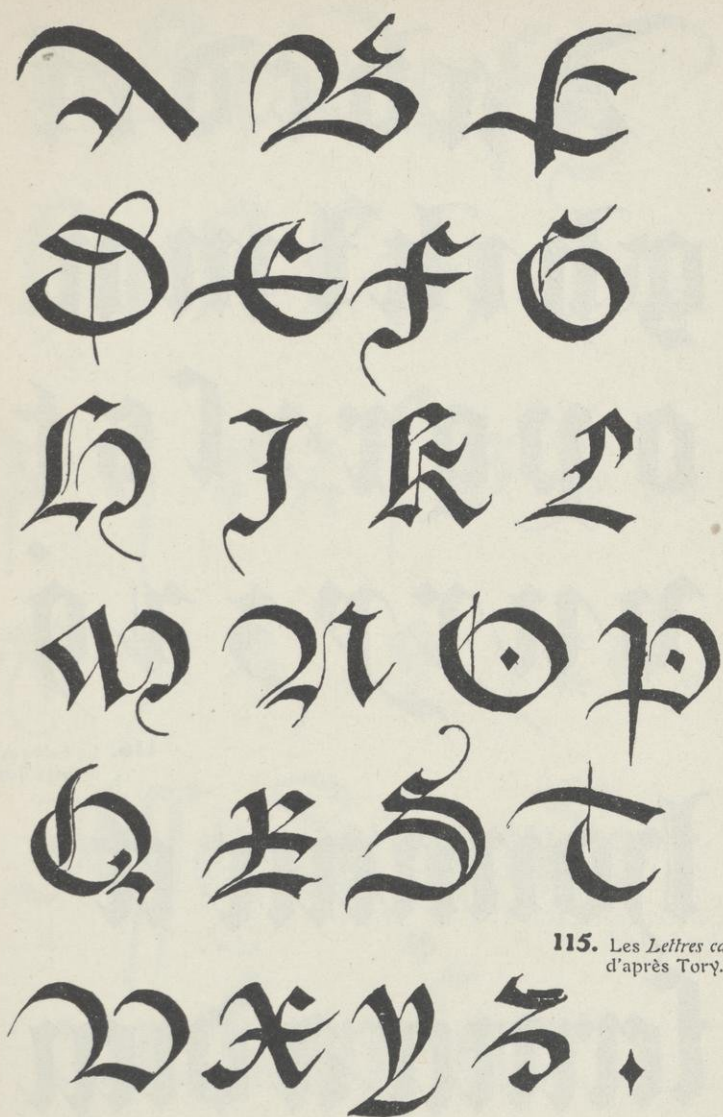 A B C
D E F G
H I K L
M N O P
Q R S T
115. Les Lettres ca
d'après Tory.
V X Y Z .